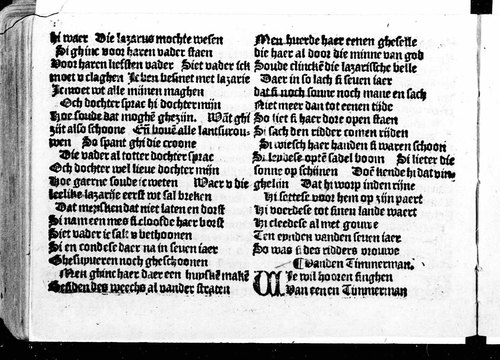 hi waer Die lazarus mochte wesen
Si ghinc voor haren vader staen
Voor haren liefsten vader Siet vader ick
moet v claghen Ic ben besmet met lazarie
Ic moet wt alle mijnen maghen
Och dochter sprac hi dochter mijn
Hoe soude dat moghē ghezijn. Wāt ghi
zijt also schoone Eñ bouē alle lantsvrou-
wen So spant ghi die croone
Die vader al totter dochter sprac
Och dochter wel lieue dochter mijn
Hoe gaerne soude ic weten Waer v die
leelike lazarije eerst wt sal breken
Dat mersken dat niet laten en dorst
Si nam een mes si cloofde haer borst
Siet vader ic salt v bethoonen
Si en conde se daer na in seuen iaer
Ghesuyueren noch gheschoonen
Men ghinc haer daer een huysken makē
Besiden des weechs al vander straten
Men huerde haer eenen gheselle
die haer al door die minne van god
Soude clincke die lazarissche belle
Daer in so lach si seuen iaer
dat si noch sonne noch mane en sach
Niet meer dan tot eenen tijde
So liet si haer dore open staen
Si sach den ridder comen rijden
Si wiesch haer handen si waren schoon
Si leydese optē sadel boom Si lieter die
sonne op schijnen Doē kende hi dat vin-
gheliin Dat hi worp inden rijne
Hi settese voor hem op zijn paert
Hi voerdese tot sinen lande waert
Hi cleedese al met gouwe
Ten eynden vanden seuen iaer
So was si des ridders vrouwe
¶ Vanden Timmerman.
Wie wil hooren singhen
Van eenen Timmerman